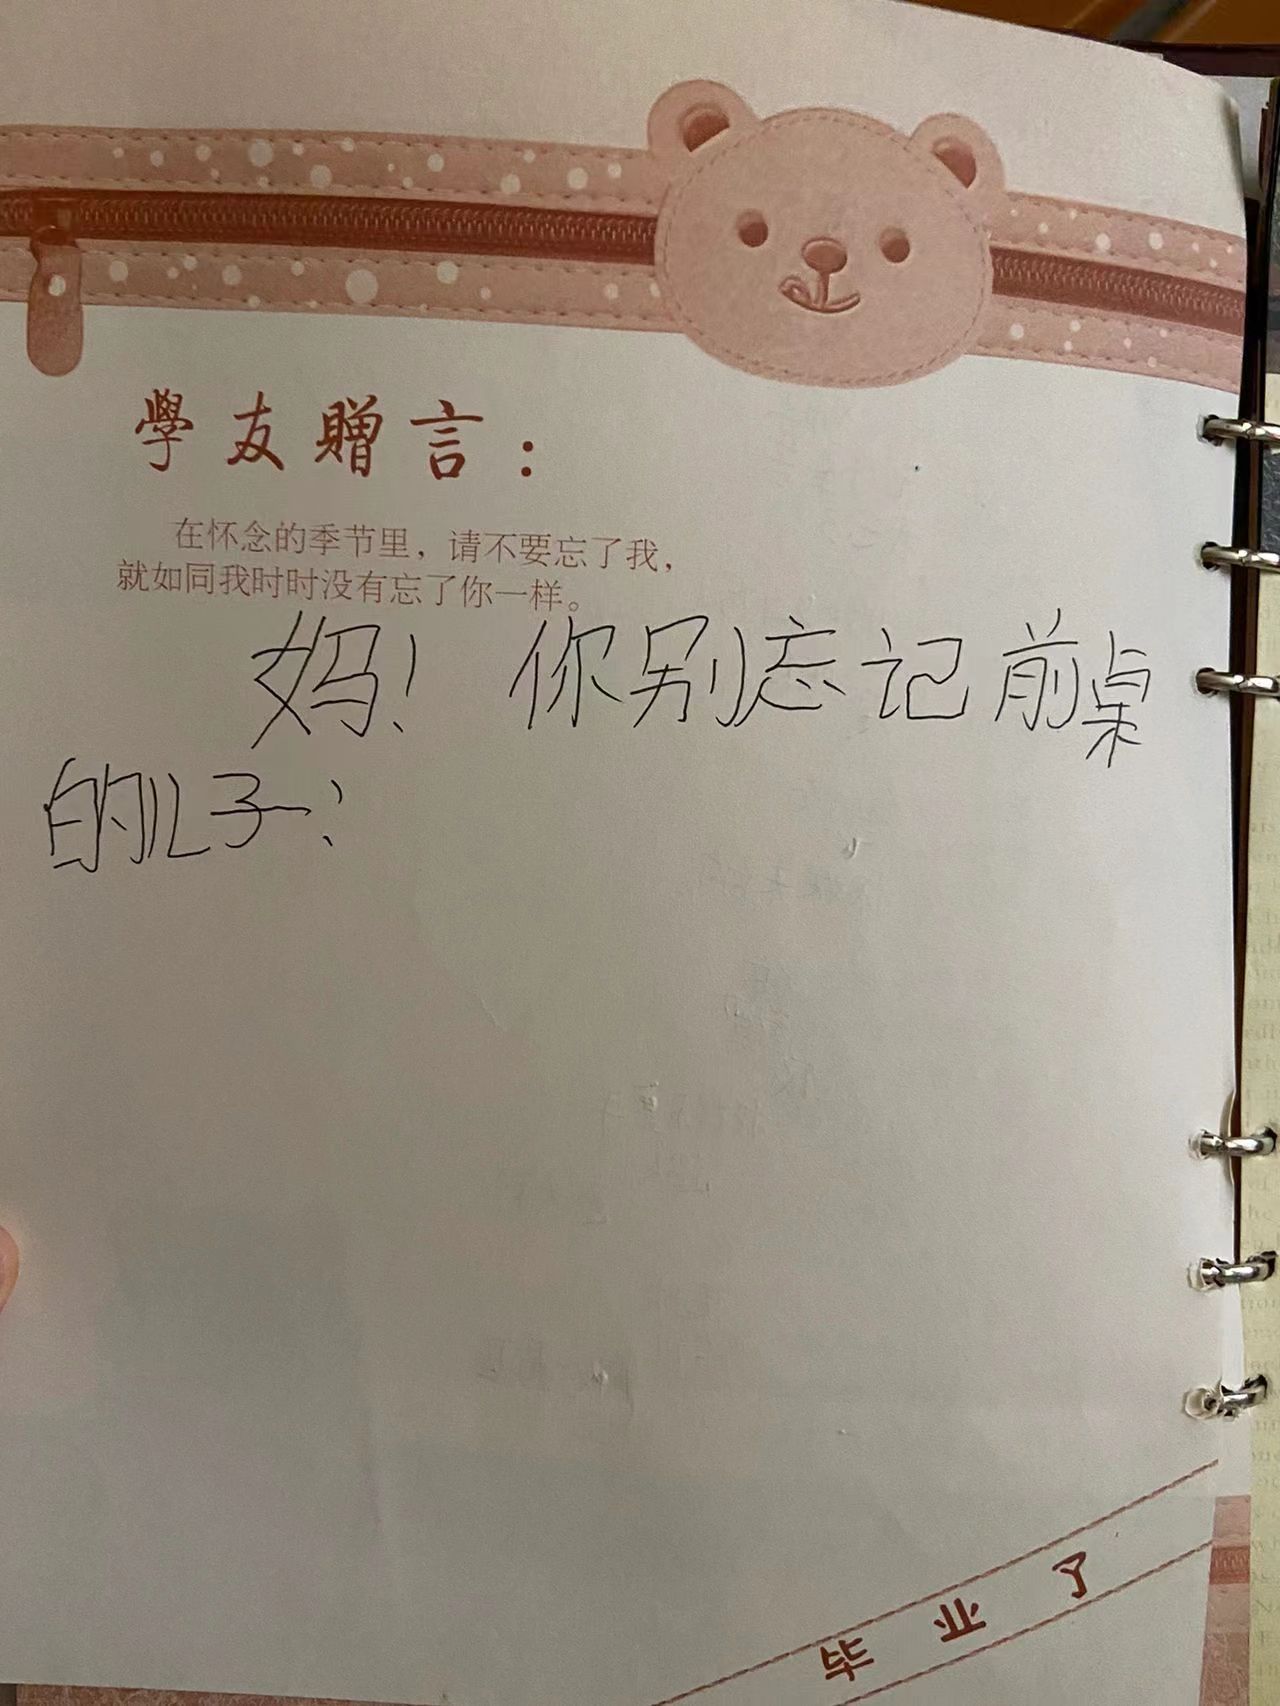 學友贈言：
在怀念的季节里，请不要忘了我，
就如同我时时没有忘了你一样。
妈！你别忘记前桌
的儿子！
毕业了